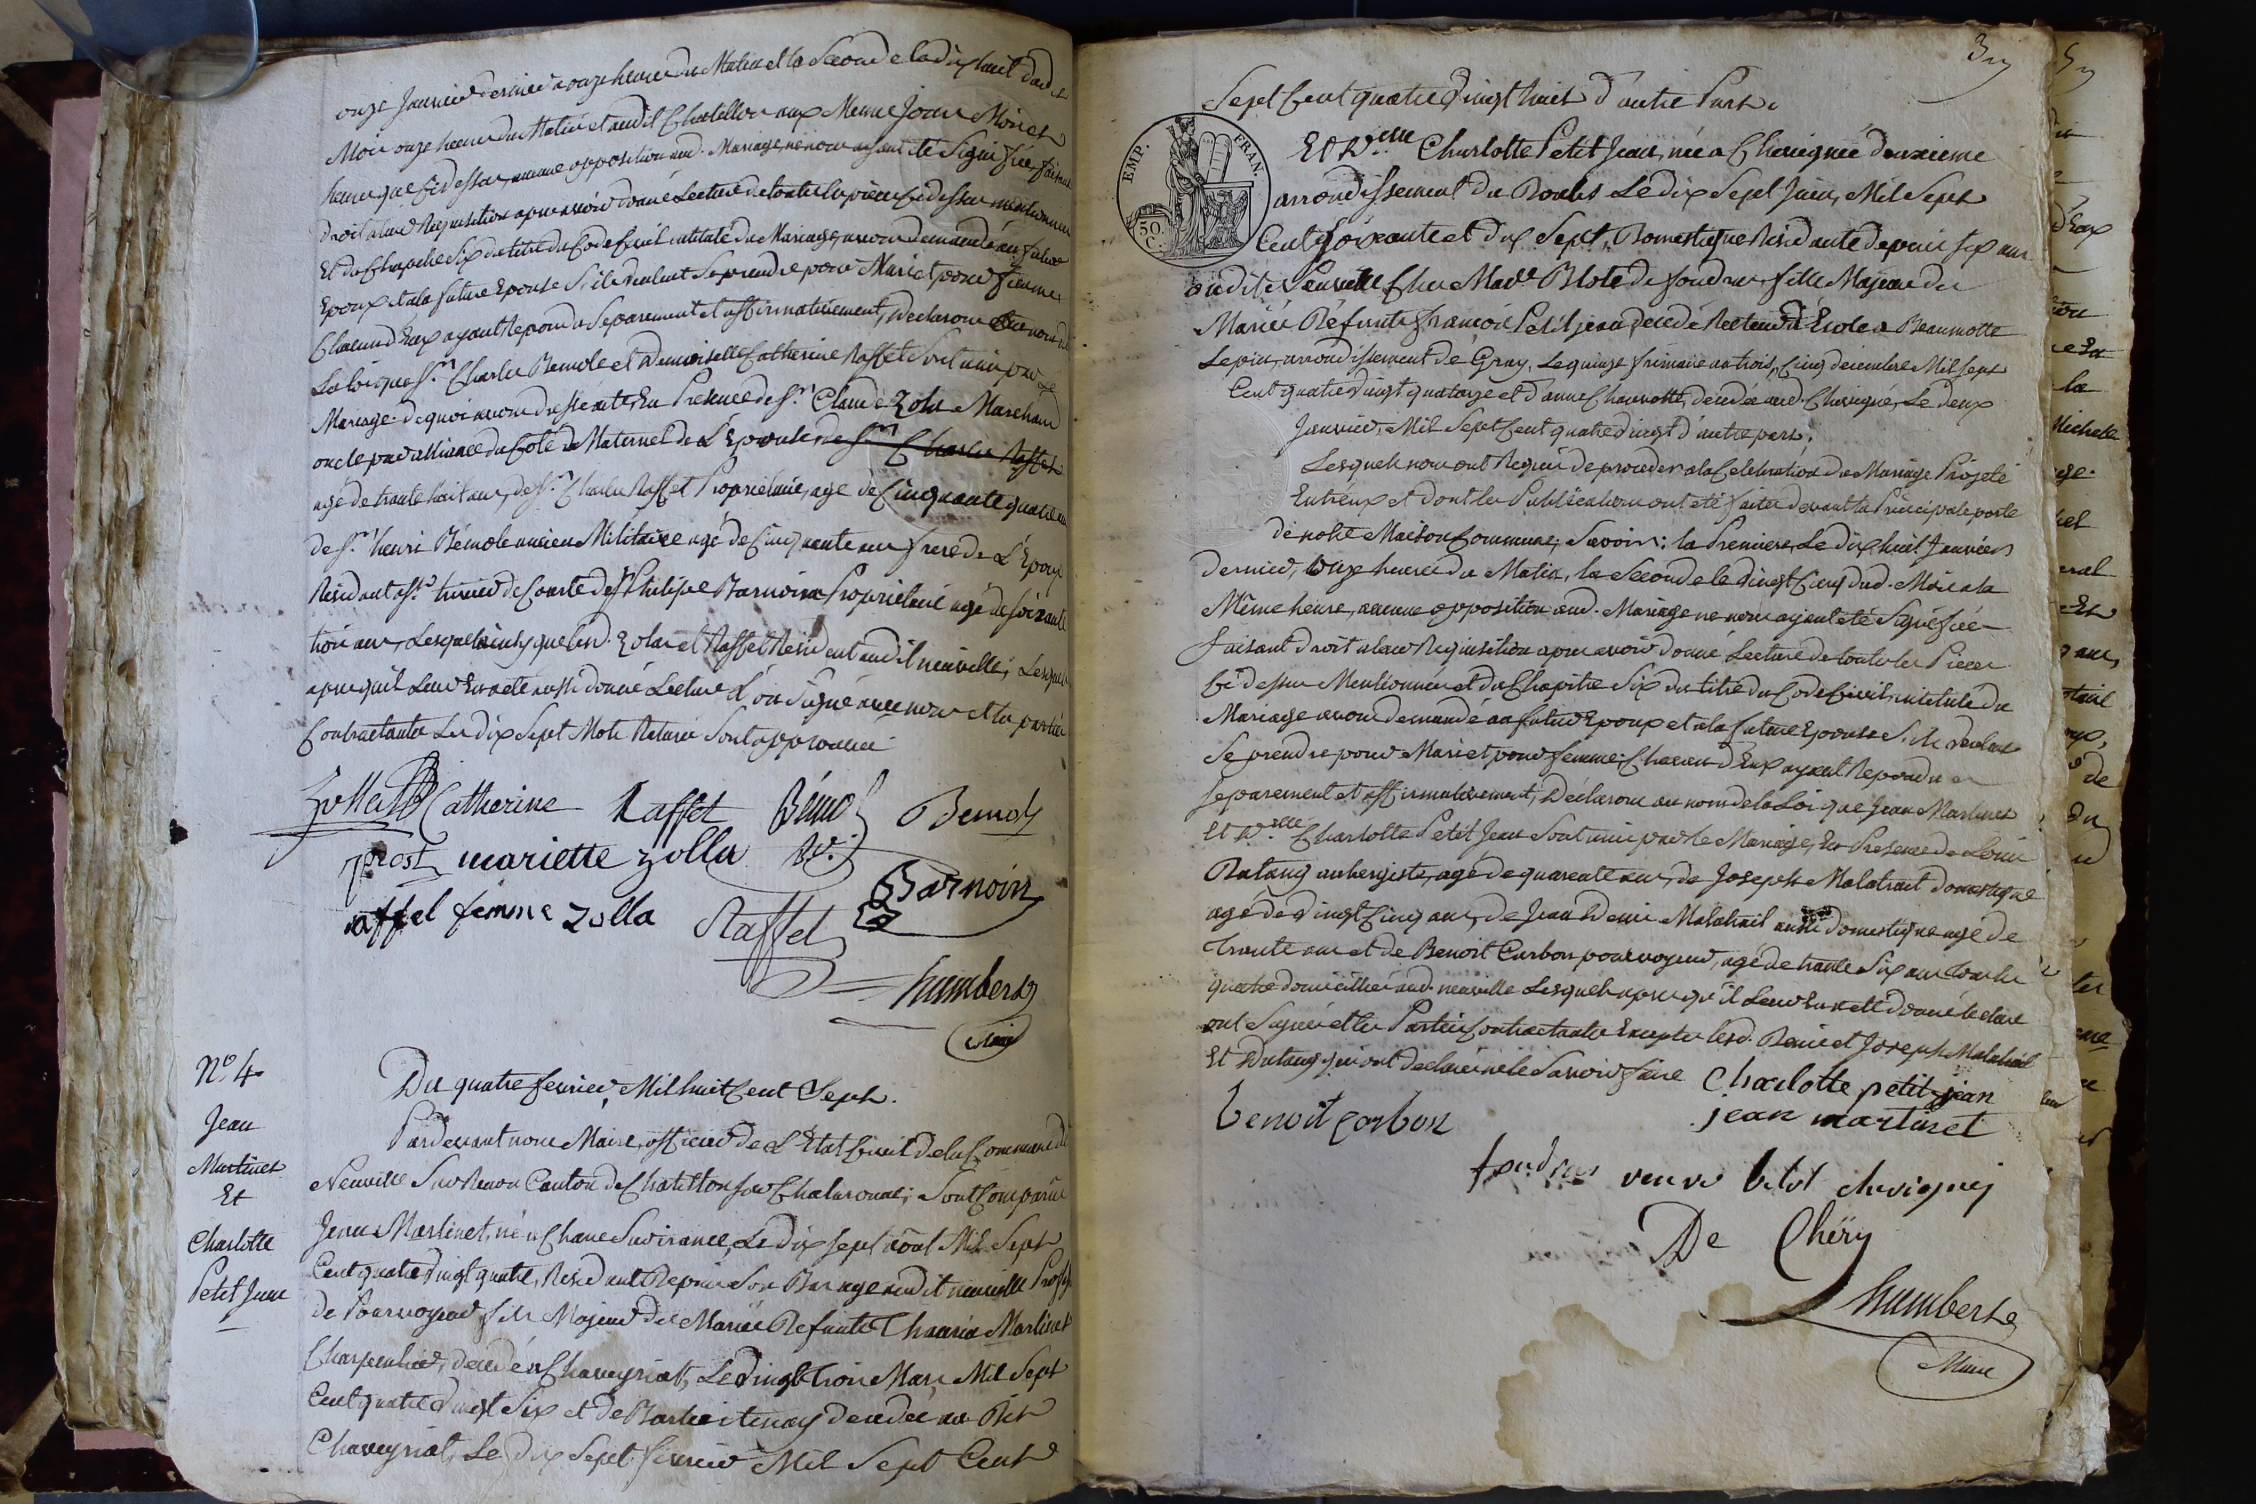 onze Janvier dernier a onze heure du Matin et la Seconde le dix huit dud.
Mois onze heure du Matin et audit Chatillon aux Meme Jour Mois et
heure que Cidessus, aucune opposition aud. Mariage ne nous ayant été Signifiée, faisant
droit a leur Requisition apres avoir donné Lecture de toutes les pieces Cidessus mentionnées
Et du Chapitre Six du titre du Code Civil intitulé du Mariage, avons demandé au futur
Epoux et a la future Epouse S'ils veulent Se prendre pour Mari et pour femme
Chacun d'Eux ayant Repondu Séparement et affirmativement, Declarons au nom de
La loi que Sr. Charles Bemole et Demoiselle Catherine Raffet Sont unis par Le
Mariage. de quoi avons dressé acte, En Presence de Sr. Claude Zola Marchand
oncle par alliance du Coté Maternel de L'Epouse, de Sr. Charles Raffet
agé de trente huit ans, de Sr. Charles Raffet Propriétaire, agé de Cinquante quatre ans
de Sr. henri Bémole ancien Militaire agé de Cinquante ans frere de L'Epoux
Résidant a St. de Sr. Philipe Barnoin Propriétaire agé de Soixante
trois ans, Lesquels ainsy que les d. Zola et Raffet Résident audit neuville, Lesquels
apres qu'il Leur En a été aussi donné Lecture L'on Signé avec nous et les parties
Contractantes Les dix Sept Mots Raturés Sont approuvés
Zolla Catherine Raffet Bémol Bemol
prost mariette zolla
Raffel femme zolla Raffet Barnoin
humbert
Maire
No. 4
Jean
Martinet
Et
Charlotte
Petit Jean
Du quatre fevrier, Mil huit Cent Sept.
Pardevant nous Maire, officier de L'Etat Civil de la Commune de
Neuville Sur Renon Canton de Chatillon sur Chalaronne; Sont Comparus
Jean Martinet, né a Chane Surirance, Le dix Sept août Mil Sept
Cent quatre vingt quatre, Résidant Depuis Son Bas age audit neuville Proff.
de Pourvoyeur, fils Majeur des Mariés Défunts Thomas Martinet
Charpentier, decedé a Chaveyriat, Le vingt trois Mars Mil Sept
Cent quatre vingt Six et de decedée au dit
Chaveyriat, Le dix Sept fevrier Mil Sept Cent
3
Sept Cent quatre vingt huit d'autre Part.
Et Delle Charlotte Petit Jean, née a Chevigney deuxieme
arrondissement du Doubs Le dix Sept Juin, Mil Sept
Cent Soixante et dix Sept, Domestique Residante depuis six ans
audit Neuville Chez Made. Blote de foudras fille Majeure des
Mariés Défunts françois Petitjean decedé Recteur d'Ecole a Beaumotte
Lepin, arrondissement de Gray, Le quinze frimaire an trois, Cinq decembre Mil Sept
Cent quatre vingt quatorze et d'anne Chauvotte, decedée aud. Chevigné, Le deux
Janvier, Mil Sept Cent quatre vingt d'autre part.
Lesquels nous ont Requis de proceder a la Celebration du Mariage Projeté
Entreux et dont les Publications ont été faites devant la Principale porte
de notre Maison Commune; Savoir: la Premiere, Le dix huit Janvier
dernier, onze heures du Matin, la Seconde le vingt Cinq dud. Mois a la
Même heure, aucune opposition aud. Mariage ne nous ayant été Signifiée
faisant droit a leur Requisition apres avoir donné Lecture de toutes les Pieces
Cidessus Mentionnées et du Chapitre Six du titre du Code Civil intitulé du
Mariage avons demandé au futur Epoux et a la future Epouse S'ils veulent
Se prendre pour Mari et pour femme; Chacun d'Eux ayant Repondu
Separement et affirmativement, Déclarons au nom de la Loi que Jean Martinet
Et Delle Charlotte Petit Jean Sont unis par le Mariage, En Presence de Louis
Datang aubergiste, agé de quarante ans, de Joseph Malatrait domestique
agé de vingt Cinq ans, de Jean Denis Malatrait aussi domestique agé de
Trente ans et de Benoit Carbon pourvoyeur, agé de trente Six ans tous les
quatre domiciliés aud. neuville Lesquels apres qu'il Leur En a été donné lecture
ont Signé et les Parties Contractantes Excepter lesd. Denis et Joseph Malatrait
Et Datang qui ont declaré ne le Savoir faire
Charlotte petit jean
benoit carbon jean martinet
foudras veuve belot chevigney
De Chéry
humbert
Maire
EMP. FRAN.
50.
C.